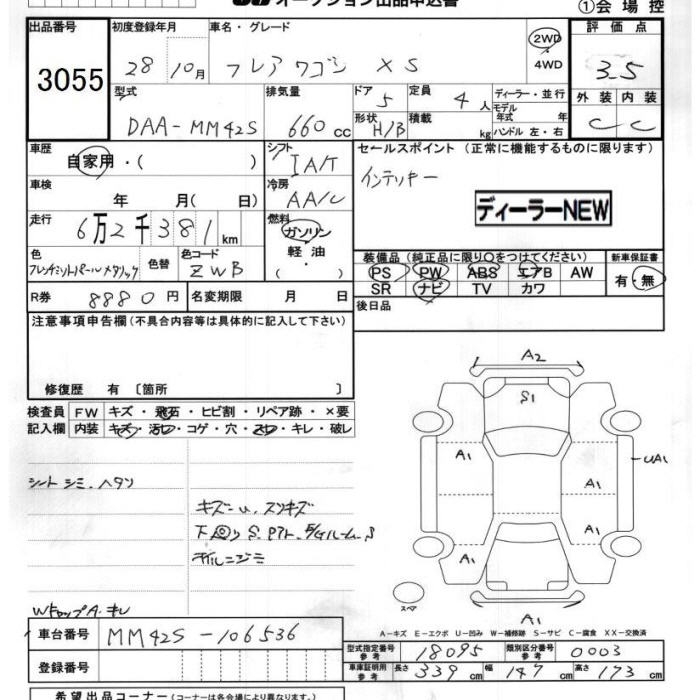 オークション出品申込書
①会場控
出品番号
3055
初度登録年月
28 10月
車名・グレード
フレアワゴン XS
2WD・
4WD
評価点
3.5
外装 内装
C C
型式
DAA-MM42S
排気量
660cc
ドア 5
形状 H/B
定員 4人
積載 kg
ディーラー・並行
モデル
年式 年
ハンドル 左・右
車歴
自家用・( )
シフト
IA/T
セールスポイント (正常に機能するものに限ります)
インテリキー
ディーラーNEW
車検
年 月( 日)
冷房
AA/C
走行
6万2千381km
燃料
ガソリン
軽油
・
色
フレンチミントパールメタリック
色替
色コード
ZWB
装備品(純正品に限り〇をつけてください)
PS PW ABS エアB AW
SR ナビ TV カワ
新車保証書
有・無
R券 8880円
名変期限 月 日
後日品
注意事項申告欄(不具合内容等は具体的に記入して下さい)
修復歴 有 〔箇所 〕
検査員
記入欄
FW キズ・飛石・ヒビ割・リペア跡・×要
内装 キズ・汚レ・コゲ・穴・スレ・キレ・破レ
シートシミ、ヘタリ
キズ
A2
S1
A1
A1
UA1
A1
A1
A1
スペア
A-キズ E-エクボ U-凹み W-補修跡 S-サビ C-腐食 XX-交換済
車台番号
MM42S-106536
登録番号
型式指定番号
参考
18095
類別区分番号
参考
0003
車庫証明用
参考
長さ 339cm 幅 147cm 高さ 173cm
希望出品コーナー(コーナーは各会場により異なります。)